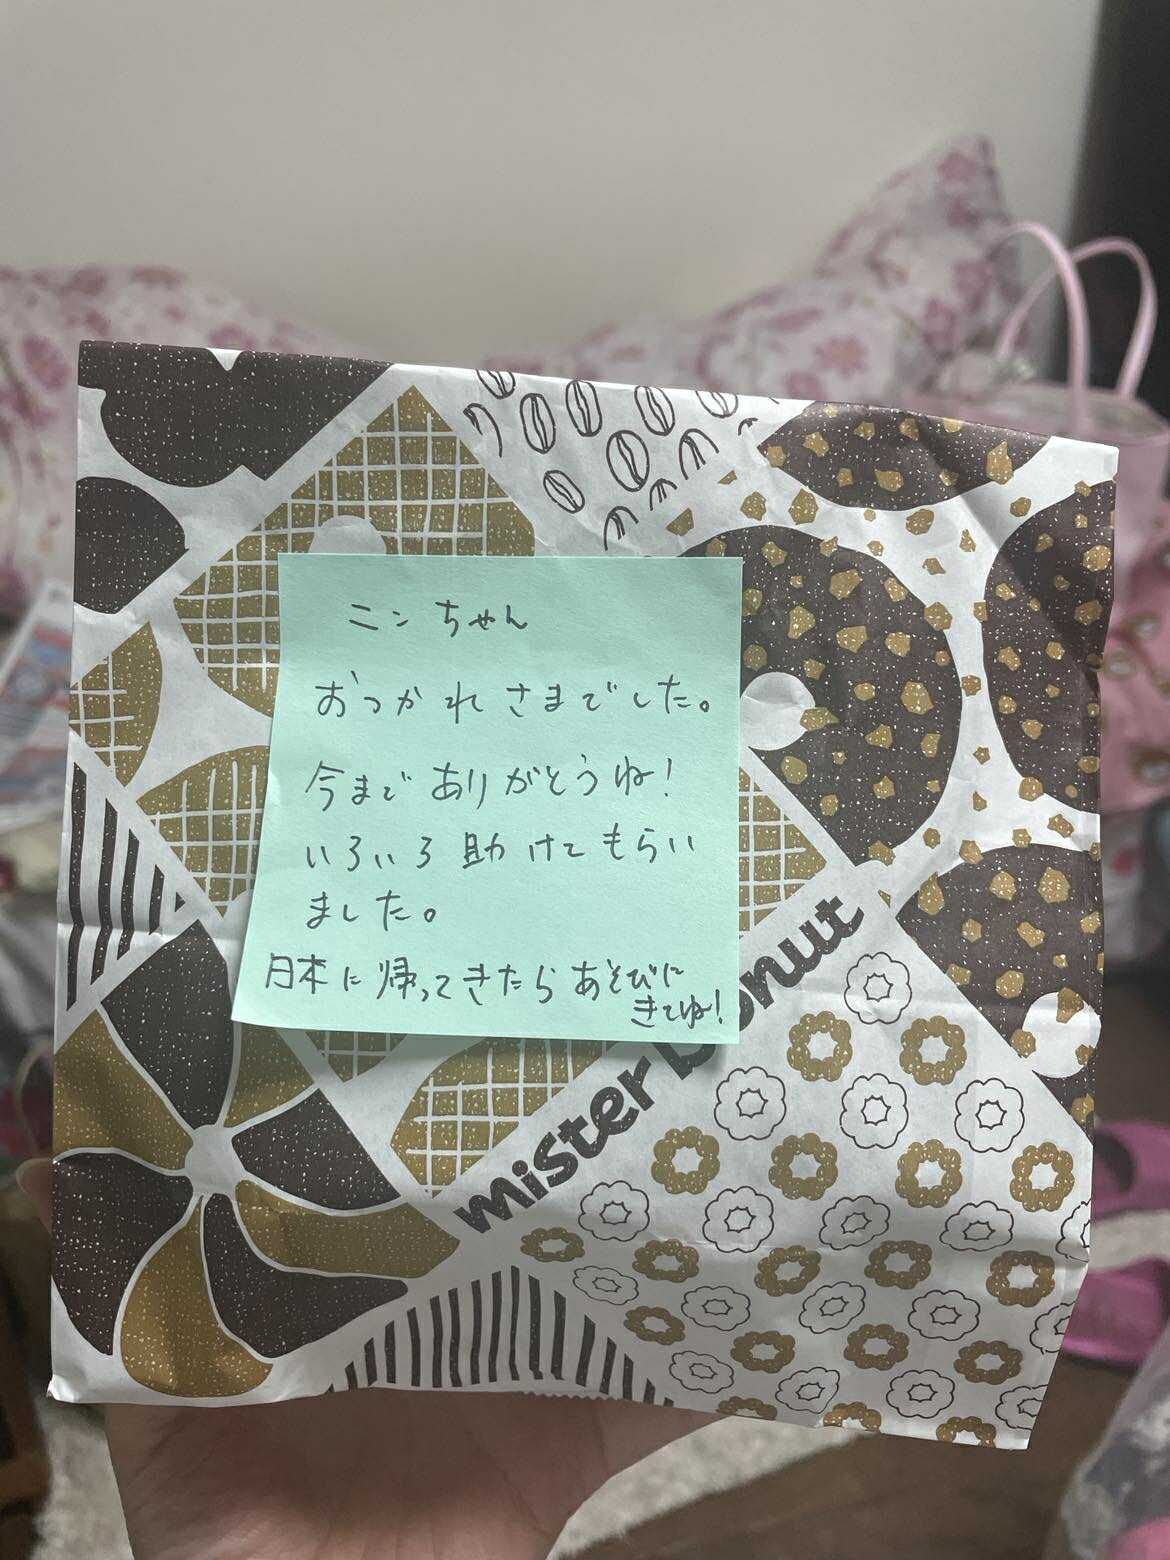 ニンちゃん
おつかれさまでした。
今までありがとうね!
いろいろ助けてもらい
ました。
日本に帰ってきたらあそびに
きてね!
mister Donut